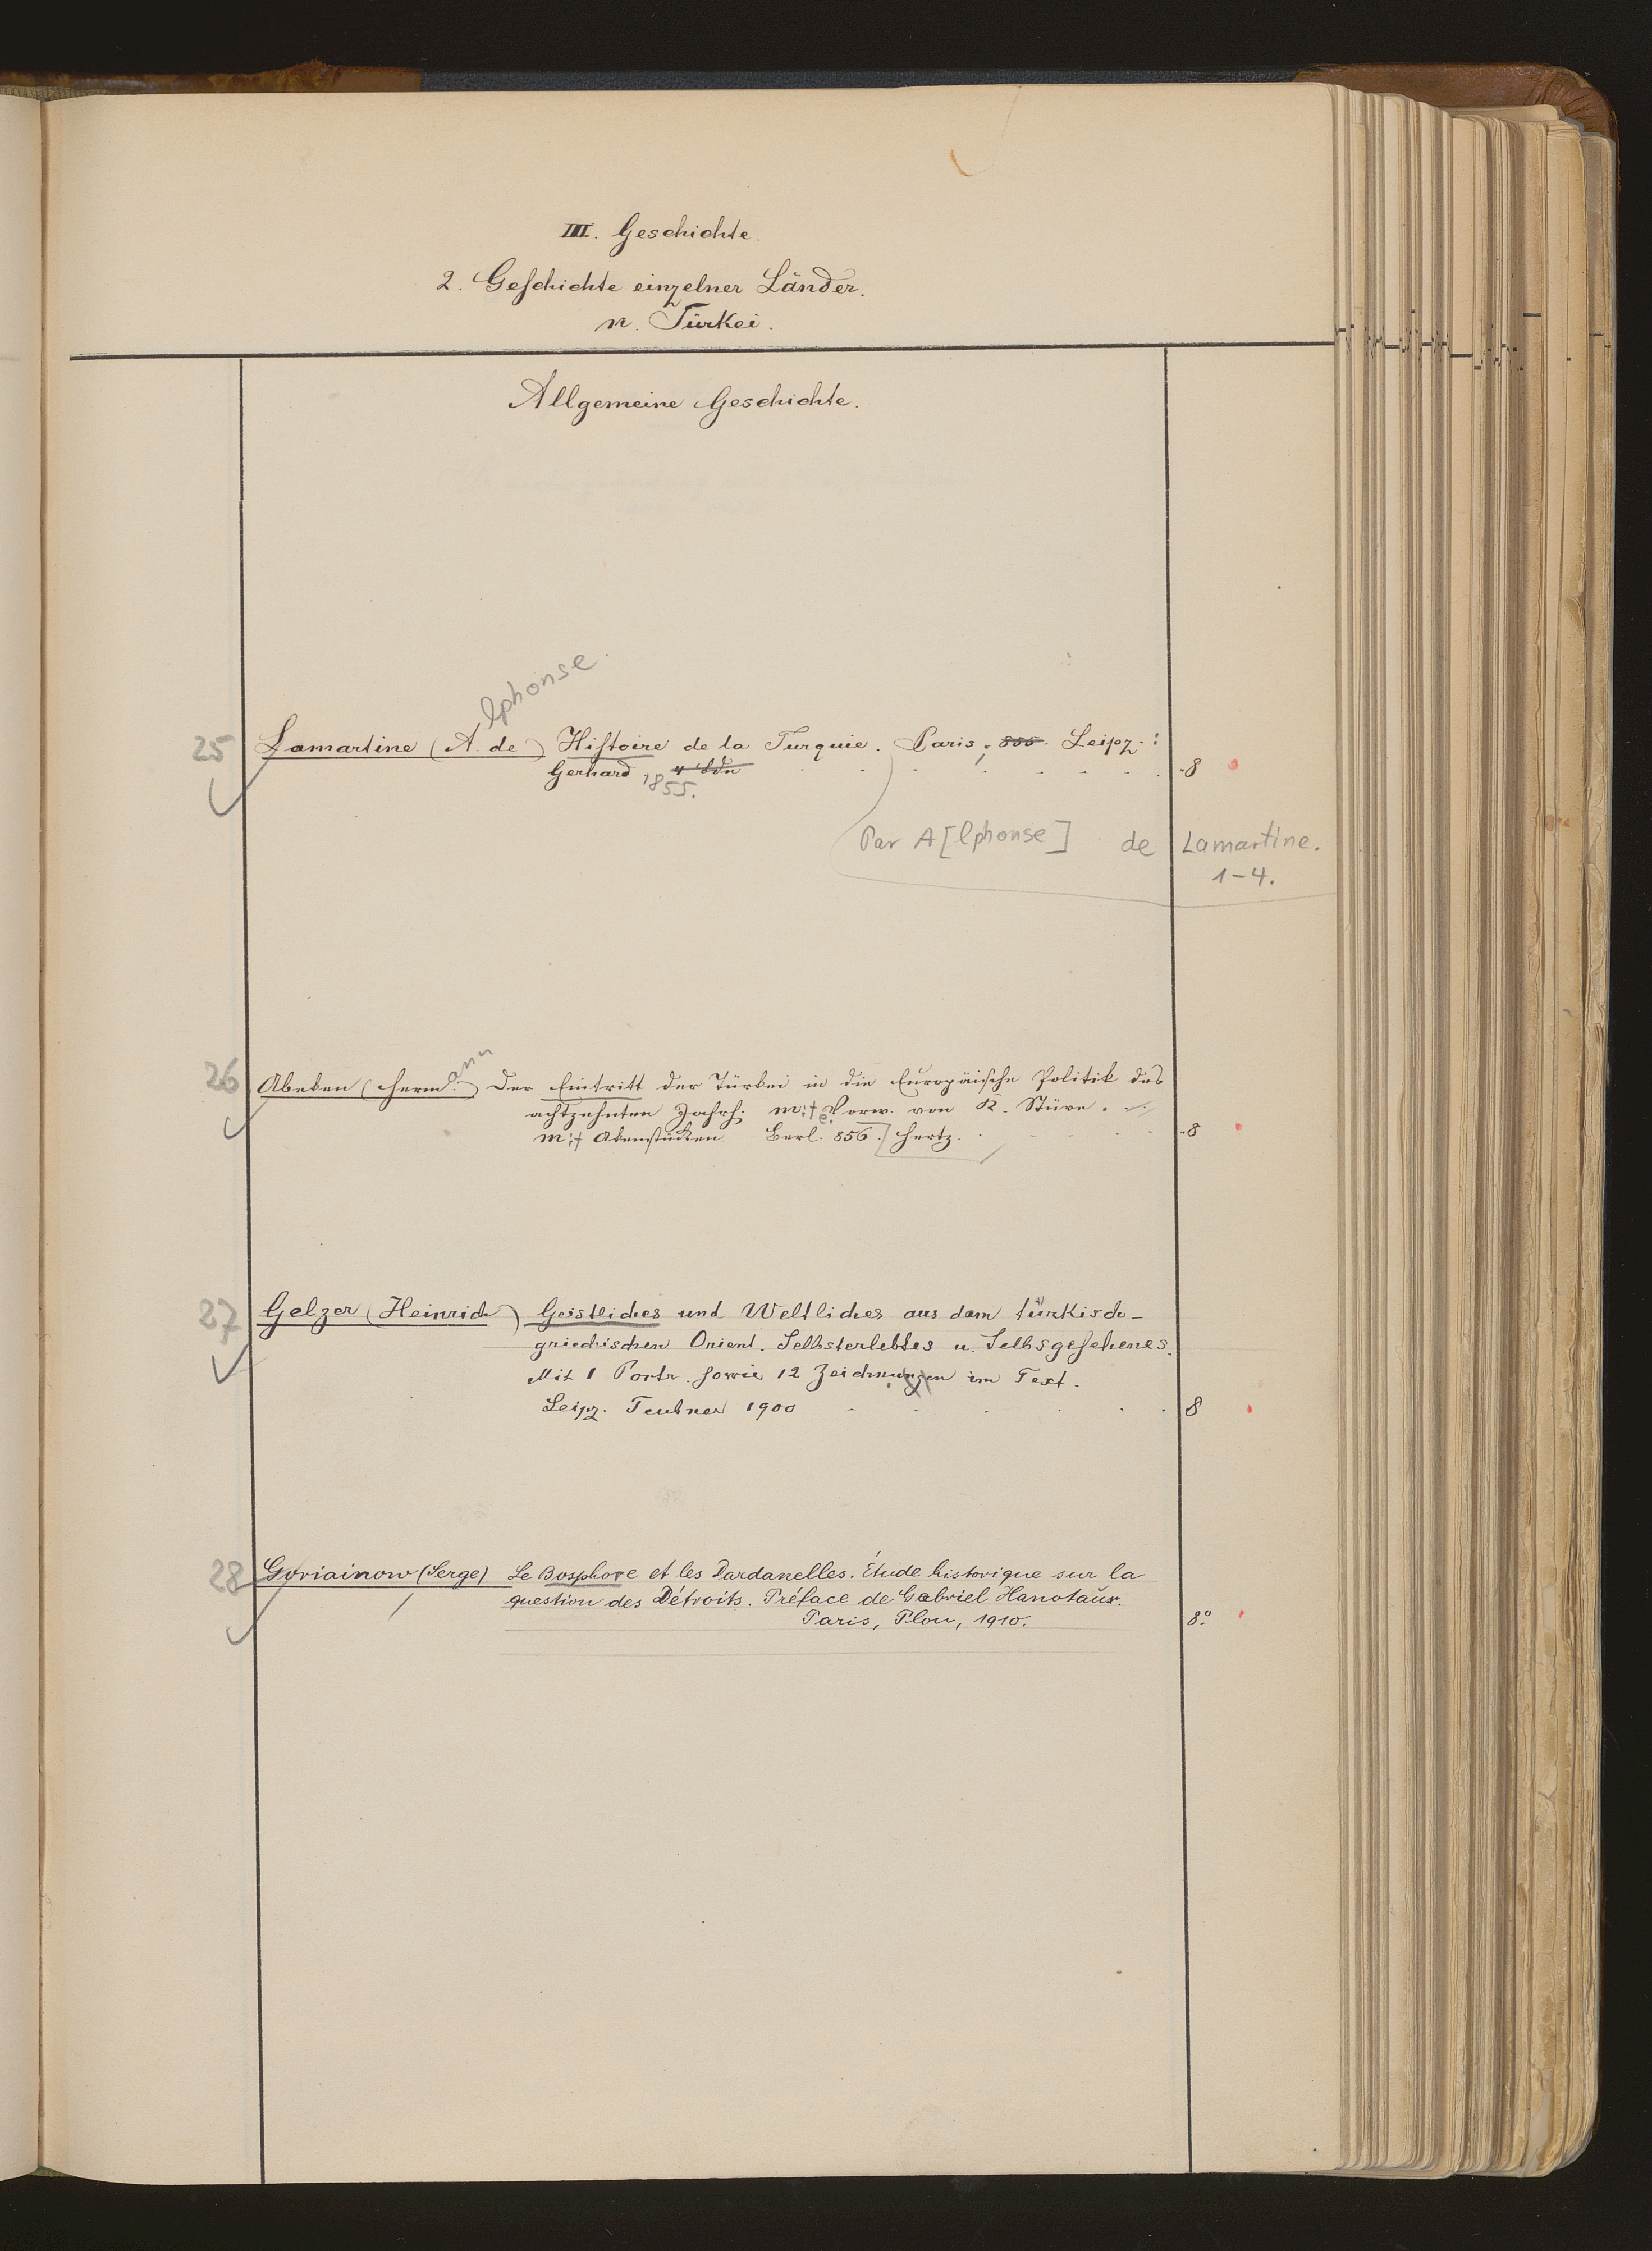 III. Geschichte.
2. Geschichte einzelner Länder.
n. Türkei.
Allgemeine Geschichte.
lphonse.
25 Lamartine (A. de) Histoire de la Turquie. Paris, 855. Leipz.:
Gerhard, 4 Bde 8
1855.
Par A[lphonse] de Lamartine.
1-4.
ann
26 Abeken (Herm.) Der Eintritt der Türkei in die Europäische Politik des
achtzehnten Jahrh. mit e. Vorw. von K. Stüve.
mit Aktenstücken Berl. 856. Hertz. 8
27 Gelzer (Heinrich) Geistliches und Weltliches aus dem türkisch-
griechischen Orient. Selbsterlebtes u. Selbsgesehenes.
Mit 1 Portr. sowie 12 Zeichnungen im Text.
Leipz. Teubner 1900 8
28 Goriainow (Serge) Le Bosphore et les Dardanelles. Étude historique sur la
question des Détroits. Préface de Gabriel Hanotaux.
Paris, Plon, 1910. 8°